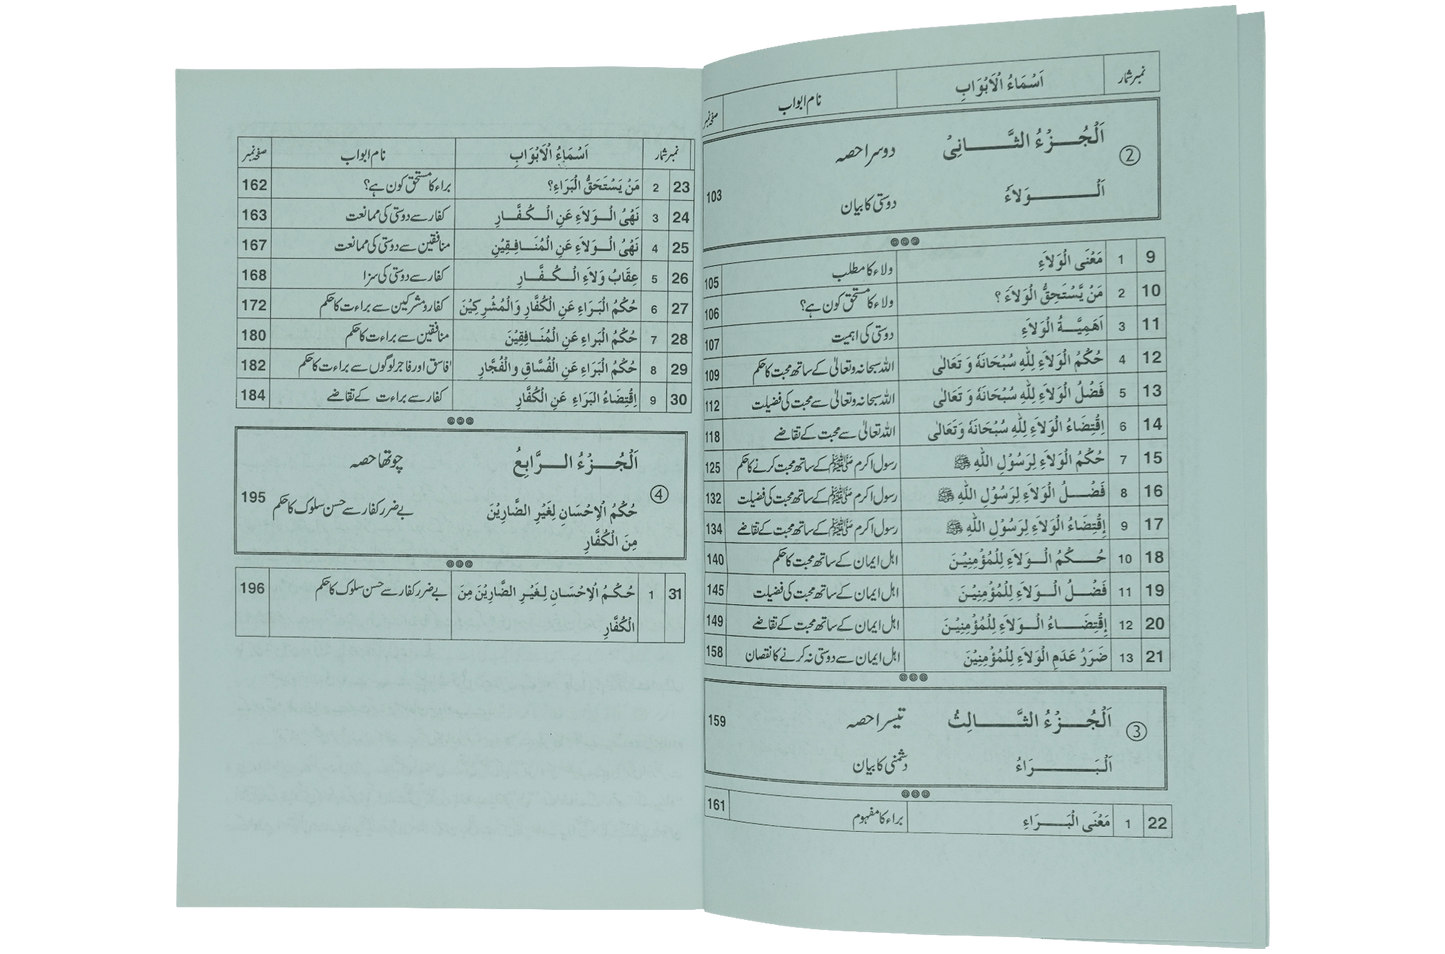 نمبر شمار اَسْمَاءُ الْاَبْوَابِ نام ابواب صفحہ نمبر
② اَلْجُــزْءُ الثَّـــانِیْ دوسرا حصہ
اَلْـــوَلَاءُ دوستی کا بیان 103
9 1 مَعْنَی الْوَلَاءِ ولاء کا مطلب 105
10 2 مَنْ یَّسْتَحِقُّ الْوَلَاءَ ؟ ولاء کا مستحق کون ہے؟ 106
11 3 اَهَمِیَّــةُ الْوَلَاءِ دوستی کی اہمیت 107
12 4 حُکْمُ الْوَلَاءِ لِلّٰهِ سُبْحَانَهٗ وَ تَعَالٰی اللہ سبحانہ وتعالیٰ کے ساتھ محبت کا حکم 109
13 5 فَضْلُ الْوَلَاءِ لِلّٰهِ سُبْحَانَهٗ وَ تَعَالٰی اللہ سبحانہ وتعالیٰ سے محبت کی فضیلت 112
14 6 اِقْتِضَاءُ الْوَلَاءِ لِلّٰهِ سُبْحَانَهٗ وَ تَعَالٰی اللہ تعالیٰ سے محبت کے تقاضے 118
15 7 حُکْمُ الْوَلَاءِ لِرَسُوْلِ اللّٰهِ ﷺ رسول اکرم ﷺ کے ساتھ محبت کرنے کا حکم 125
16 8 فَضْــلُ الْوَلَاءِ لِرَسُوْلِ اللّٰهِ ﷺ رسول اکرم ﷺ کے ساتھ محبت کی فضیلت 132
17 9 اِقْتِضَاءُ الْوَلَاءِ لِرَسُوْلِ اللّٰهِ ﷺ رسول اکرم ﷺ کے ساتھ محبت کے تقاضے 134
18 10 حُــکْمُ الْــوَلَاءِ لِلْمُؤْمِنِیْنَ اہل ایمان کے ساتھ محبت کا حکم 140
19 11 فَضْــلُ الْــوَلَاءِ لِلْمُؤْمِنِیْنَ اہل ایمان کے ساتھ محبت کی فضیلت 145
20 12 اِقْتِضَــاءُ الْــوَلَاءِ لِلْمُؤْمِنِیْنَ اہل ایمان کے ساتھ محبت کے تقاضے 149
21 13 ضَرَرُ عَدَمِ الْوَلَاءِ لِلْمُؤْمِنِیْنَ اہل ایمان سے دوستی نہ کرنے کا نقصان 158
③ اَلْجُــزْءُ الثَّـــالِثُ تیسرا حصہ 159
اَلْبَـــرَاءُ دشمنی کا بیان
22 1 مَعْنَی الْبَــرَاءِ براء کا مفہوم 161
نمبر شمار اَسْمَاءُ الْاَبْوَابِ نام ابواب صفحہ نمبر
23 2 مَنْ یَسْتَحَقُّ الْبَرَاءِ؟ براء کا مستحق کون ہے؟ 162
24 3 نَهْیُ الْــوَلَاءِ عَنِ الْــکُــفَّــارِ کفار سے دوستی کی ممانعت 163
25 4 نَهْیُ الْــوَلَاءِ عَنِ الْمُنَــافِــقِیْنِ منافقین سے دوستی کی ممانعت 167
26 5 عِقَابُ وَلَاءِ الْــکُــفَّــارِ کفار سے دوستی کی سزا 168
27 6 حُکْمُ الْبَرَاءِ عَنِ الْکُفَّارِ وَالْمُشْرِکِیْنَ کفار و مشرکین سے براءت کا حکم 172
28 7 حُکْمُ الْبَرَاءِ عَنِ الْمُنَــافِقِیْنَ منافقین سے براءت کا حکم 180
29 8 حُکْمُ الْبَرَاءِ عَنِ الْفُسَّاقِ والْفُجَّارِ فاسق اور فاجر لوگوں سے براءت کا حکم 182
30 9 اِقْتِضَاءُ الْبَرَاءِ عَنِ الْکُفَّارِ کفار سے براءت کے تقاضے 184
اَلْجُــزْءُ الــرَّابِعُ چوتھا حصہ
④ حُکْمُ الْاِحْسَانِ لِغَیْرِ الضَّارِیْنَ بے ضرر کفار سے حسن سلوک کا حکم 195
مِنَ الْکُفَّارِ
31 1 حُکْمُ الْاِحْسَانِ لِغَیْرِ الضَّارِیْنَ مِنَ بے ضرر کفار سے حسن سلوک کا حکم 196
الْکُفَّارِ